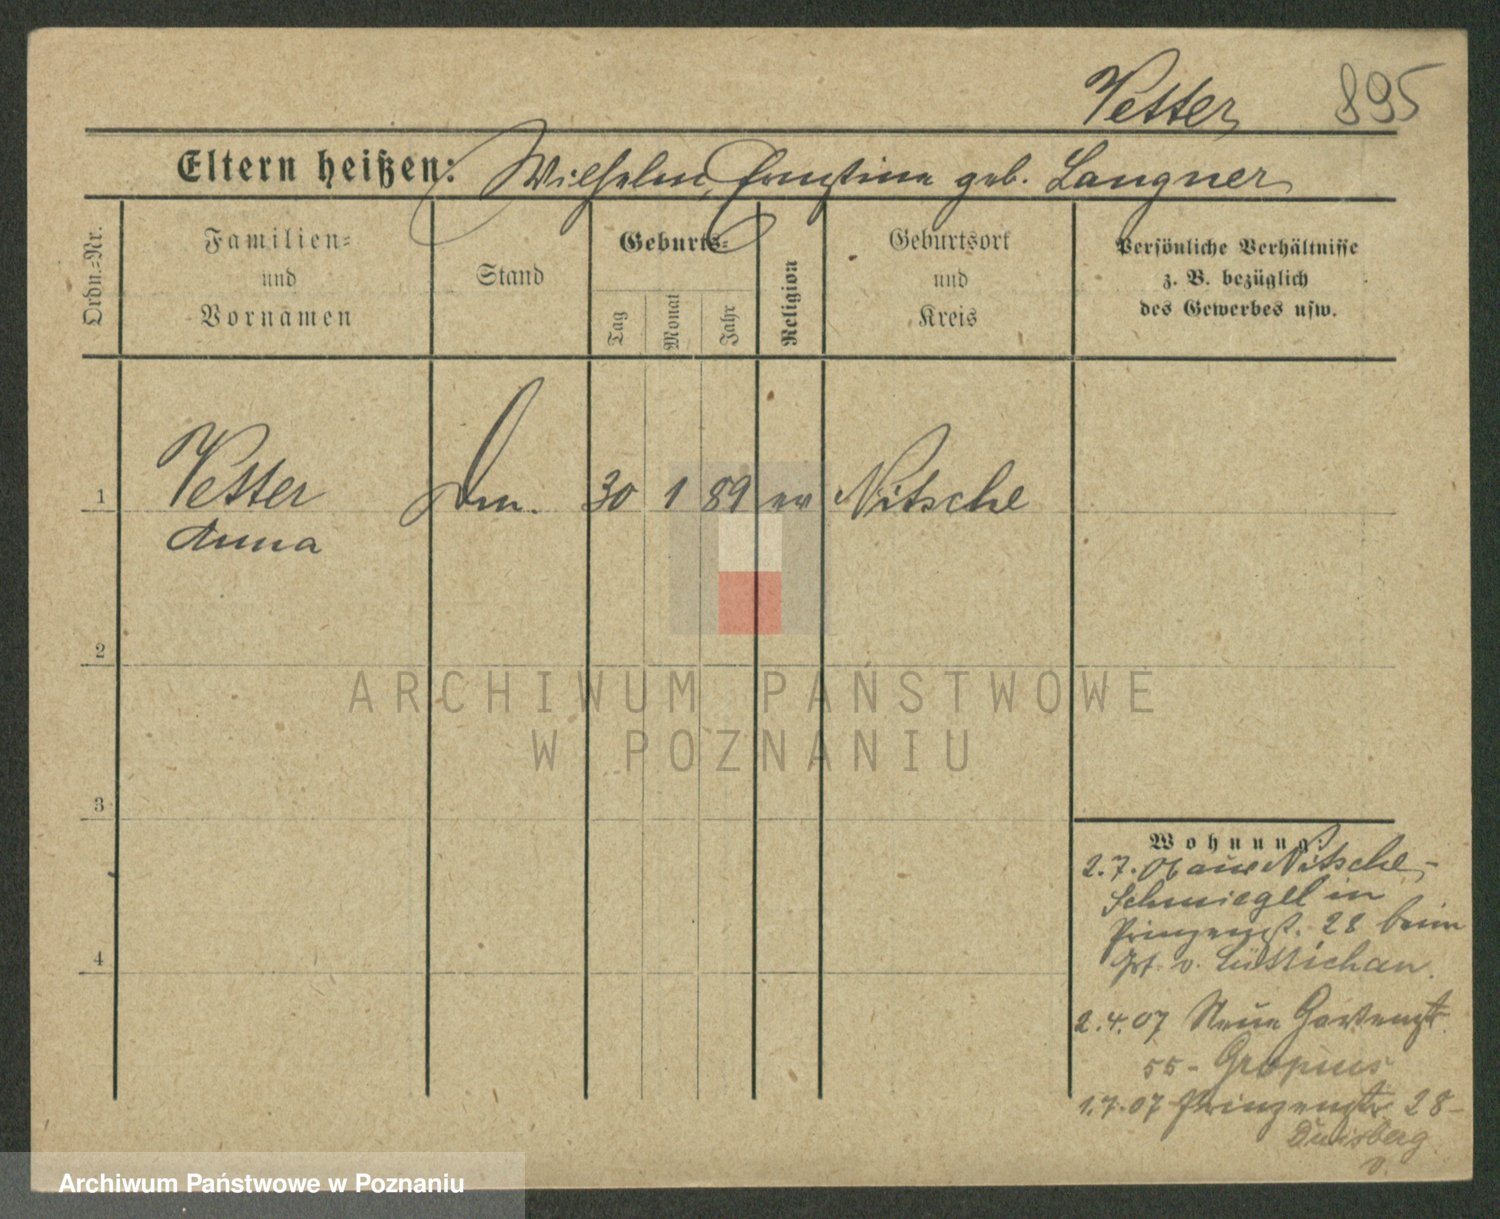 Vetter 895
Eltern heißen: Wilhelm, Ernstine geb. Langner
Ordn.-Nr.
Familien-
und
Vornamen
Stand
Geburts-
Tag
Monat
Jahr
Religion
Geburtsort
und
Kreis
Persönliche Verhältnisse
z. B. bezüglich
des Gewerbes usw.
1 Vetter Dm. 30 1 89 ev Nitsche
Anna
2
ARCHIWUM PAŃSTWOWE
W POZNANIU
3
Wohnung:
2.7.06 aus Nitsche,
Schmiegel in
Prinzenst. 28 beim
v. Lüttichau.
4
2.4.07 Neue Gartenstr.
55 - Gropius
1.7.07 Prinzenstr. 28 -
Duisberg
Archiwum Państwowe w Poznaniu